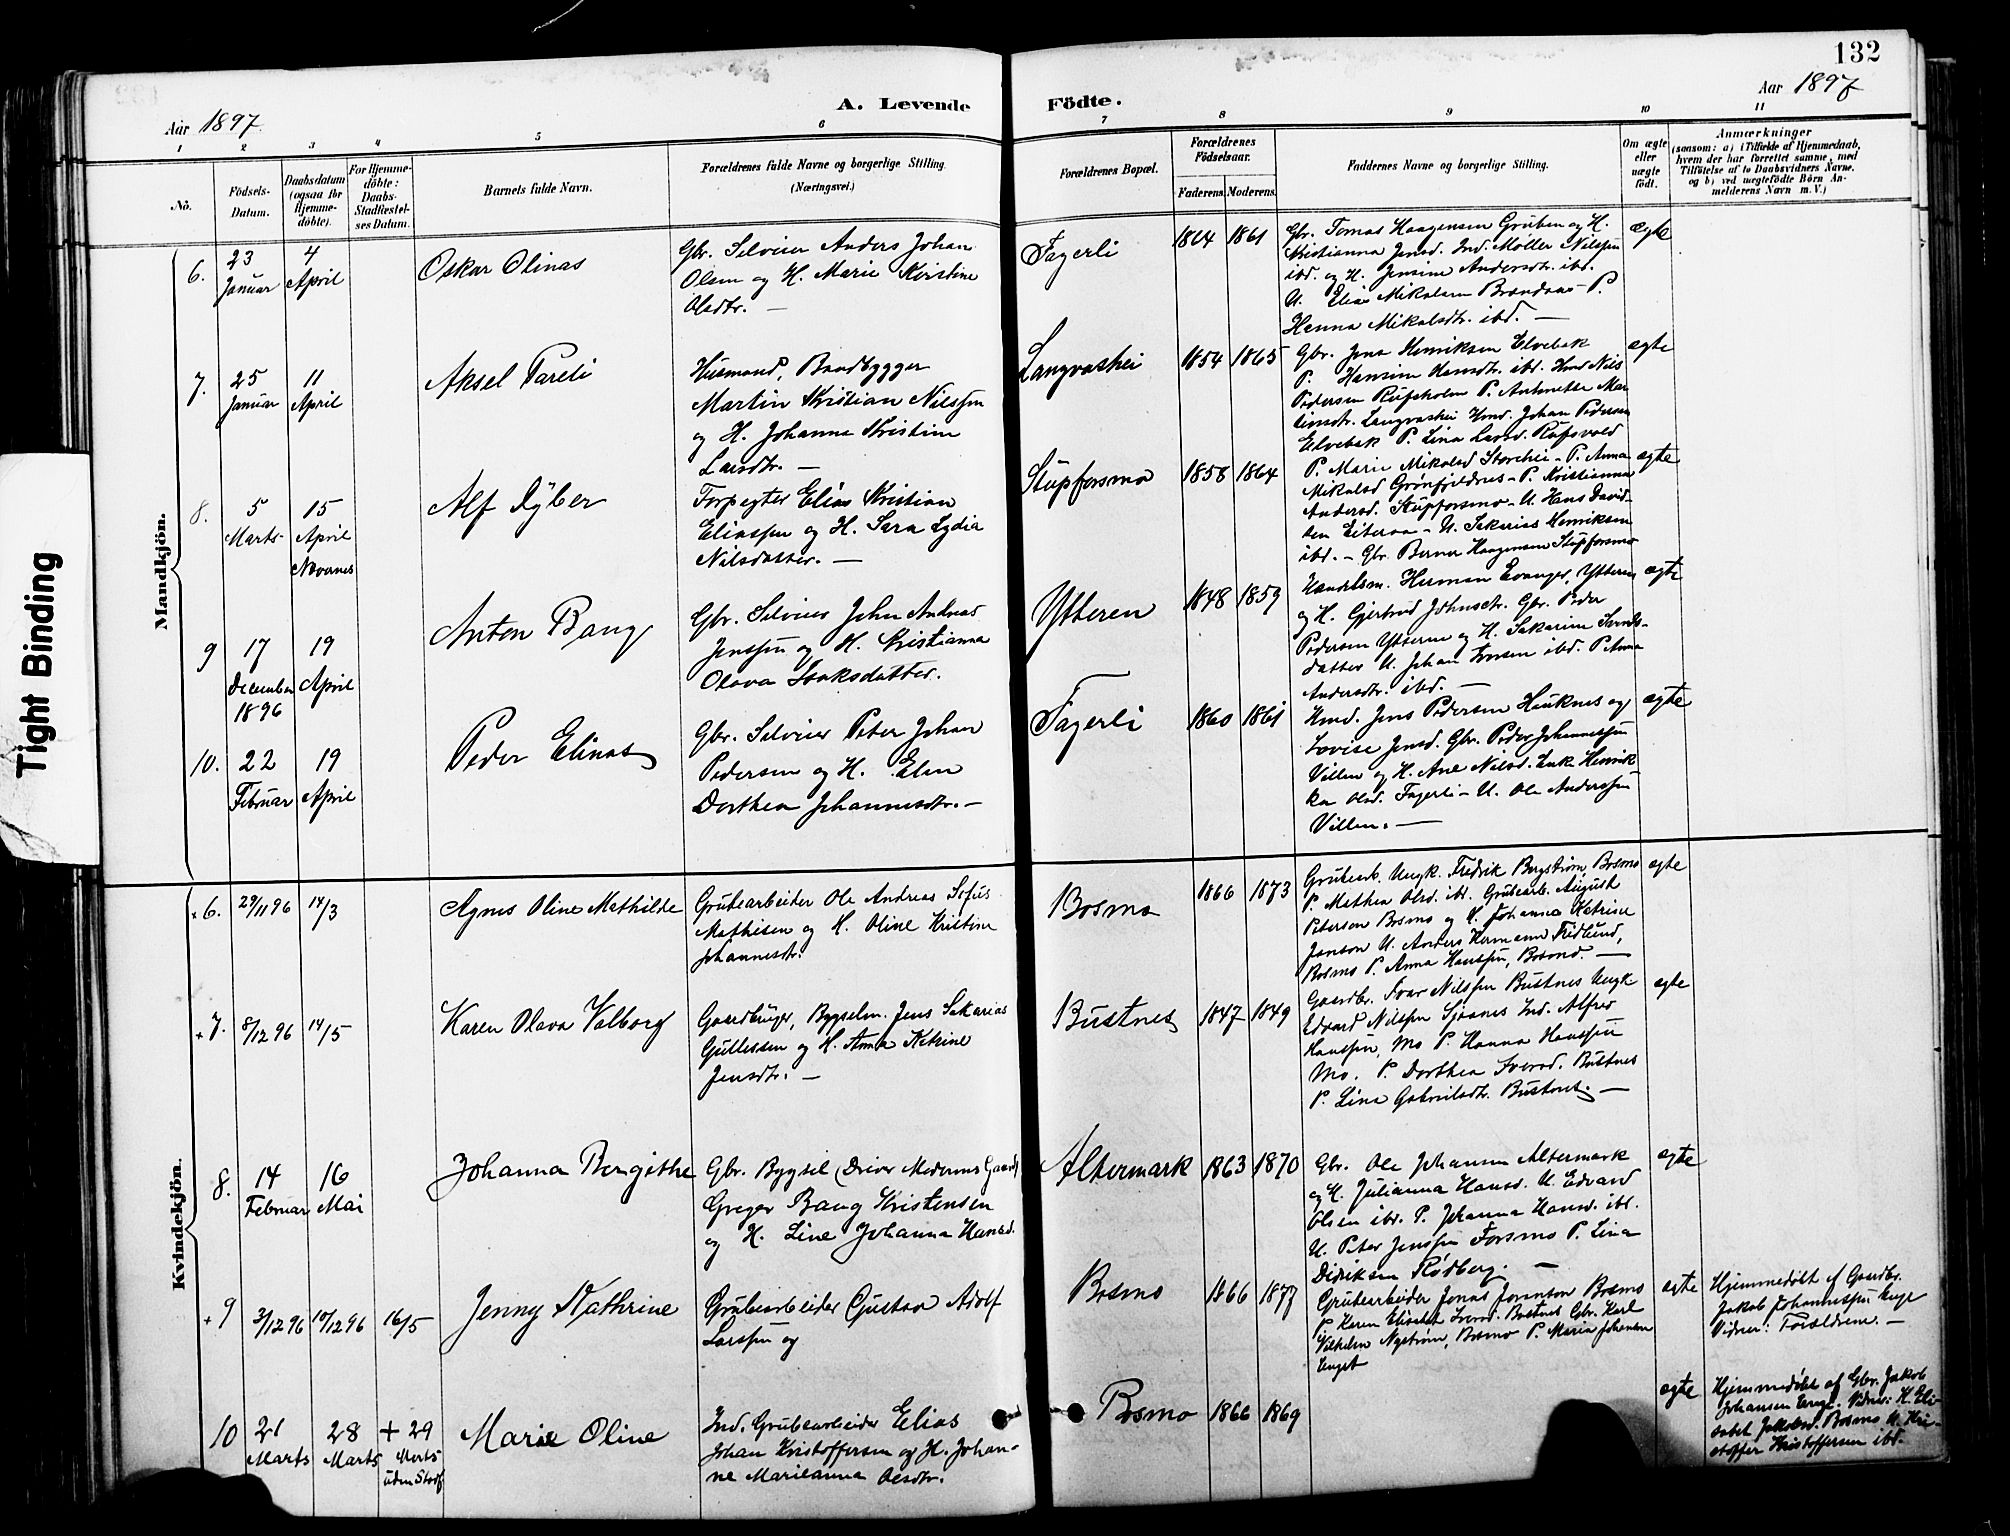 132
Aar 1897.
A. Levende Födte.
Aar 1897
1 2 3 4 5 6 7 8 9 10 11
No.
Födsels-Datum.
Daabsdatum (ogsaa for Hjemmedöbte).
For Hjemmedöbte: Daabs-Stadfæstelses Datum.
Barnets fulde Navn.
Forældrenes fulde Navne og borgerlige Stilling.
(Næringsvei.)
Forældrenes Bopæl.
Forældrenes Födselsaar.
Faderens. Moderens.
Faddernes Navne og borgerlige Stilling.
Om ægte eller uægte födt.
Anmærkninger
(saasom: a) i Tilfælde af Hjemmedaab,
hvem der har forrettet samme, med
Tilföielse af to Daabsvidners Navne,
og b) ved uægtefödte Börn An-
melderens Navn m. V.)
Tight Binding
Mandkjön.
6. 23 Januar 4 April
Oskar Olinas
Gbr. Selveier Anders Johan
Olsen og H. Marie Kristine
Olsdtr. —
Fagerli
1864 1861
Gbr. Tomas Haagensen Gruben og H.
Kristianna Jensd. Ind. Möller Nilssen
ibd. og H. Jensine Andersdtr. ibd.
U. Elias Mikalsen Brandaas P.
Hanna Mikalsdtr. ibd. —
ægte
7. 25 Januar 11 April
Aksel Pareli
Husmand, Baadbygger
Martin Kristian Nilssen
og H. Johanna Kristine
Larsdtr. —
Langvashei
1854 1865
Gbr. Jens Henriksen Elvebak
P. Hansine Hansdtr. ibd. Hmd Nils
Pedersen P. Antonette Mar
tinsdtr. Langvashei Hmd. Johan Pedersen
Elvebak P. Lina Larsd.
ægte
8. 5 Marts 15 April Nævernes
Alf Dyber
Forpagter Elias Kristian
Eliassen og H. Sara Lydia
Nilsdatter. —
Stupforsmo
1858 1864
P. Marie Mikalsd Storhei - P. Anna
Mikalsd Grönfjeldnes - P. Kristianna
Andersd. Stupforsmo - U. Hans David-
sen Eiteraa - U. Sakarias Henriksen
ibd. - Gbr. Berner Haagensen Stupforsmo
ægte
9 17 December 1896 19 April
Anton Bang
Gbr. Selveier John Andreas
Jenssen og H. Kristianna
Olava Isaksdatter.
Ytteren
1848 1859
Handelsm. Herman Evanger, Ytteren
og H. Gjertrud Johnsdtr. Gbr. Peder
Pedersen Ytteren og H. Sakarine
datter U. Johan Iversen ibd. P. Anna
Andersdtr. ibd. —
ægte
10. 22 Februar 19 April
Peder Elinas
Gbr. Selveier Peter Johan
Pedersen og H. Elen
Dorthea Johannesdtr. —
Fagerli
1860 1861
Hmd. Jens Pedersen Hauknes og
Lovise Jensd. Gbr. Peder Johannessen
Villen og H. Ane Nilsd. Enk Henrik
ka Olsd. Fagerli - U. Ole Anderssen
Villen. —
ægte
Kvindekjön.
+ 6. 29/11 96 14/3
Agnes Oline Mathilde
Grubearbeider Ole Andreas Sofus
Mathisen og H. Oline Kristine
Johannesdtr.
Bosmo
1866 1873
Grubearb. Ungk. Fredrik Bergström, Bosmo
P. Mathea Olsd. ibd. Grubearb. August
Peterson Bosmo og H. Johanna Katrine
Janson U. Anders Hermann Fredlund,
Bosmo P. Anna Hanssen, Bosmo. —
ægte
+ 7. 8/12 96 14/5
Karen Olava Valborg
Gaardbruger, Bygselm. Jens Sakarias
Gullessen og H. Anna Katrine
Jensdtr. —
Bustnes
1847 1849
Gaardbr. Ivar Nilssen Bustnes Ungk
Edvard Nilssen Sjonnes Ind. Alfred
Hanssen, Mo P. Hanna Hanssen
Mo. P. Dorthea Iversd. Bustnes
P. Lina Gabrielsdtr. Bustnes. —
ægte
8. 14 Februar 16 Mai
Johanna Bergithe
Gbr. Bygsel (Driver Moderens Gaard)
Greger Bang Kristensen
og H. Line Johanna Hansd.
Altermark
1863 1870
Gbr. Ole Johansen Altermark
og H. Julianna Hansd. U. Edvard
Olsen ibd. P. Johanna Hansd. ibd.
U. Peter Jenssen Forsmo P. Lina
Didriksen Rödberg. —
ægte
+ 9 3/12 96 10/12 96 16/5
Jenny Kathrine
Grubearbeider Gustav Adolf
Larssen og
Bosmo
1866 1877
Grubearbeider Jonas Joranson Bosmo
P. Karen Elisabet Iversd. Bustnes Gbr. Karl
Vilhelm Nyström, Bosmo P. Maria Johansen
Enget
ægte
Hjemmedöbt af Gaardbr.
Jakob Johannessen Enge
Vidner: Forældrene. —
10 21 Marts 28 Marts + 29 Marts uden Stadf
Marie Oline
Ind. Grubearbeider Elias
Johan Kristoffersen og H. Johan-
ne Marieanna Olsdtr.
Bosmo
1866 1869
ægte
Hjemmedöbt af Gbr. Jakob
Johansen Enge. Vidner: H. Eli-
sabet Jakobsd. Bosmo U. Kri-
stoffer Kristoffersen ibd.